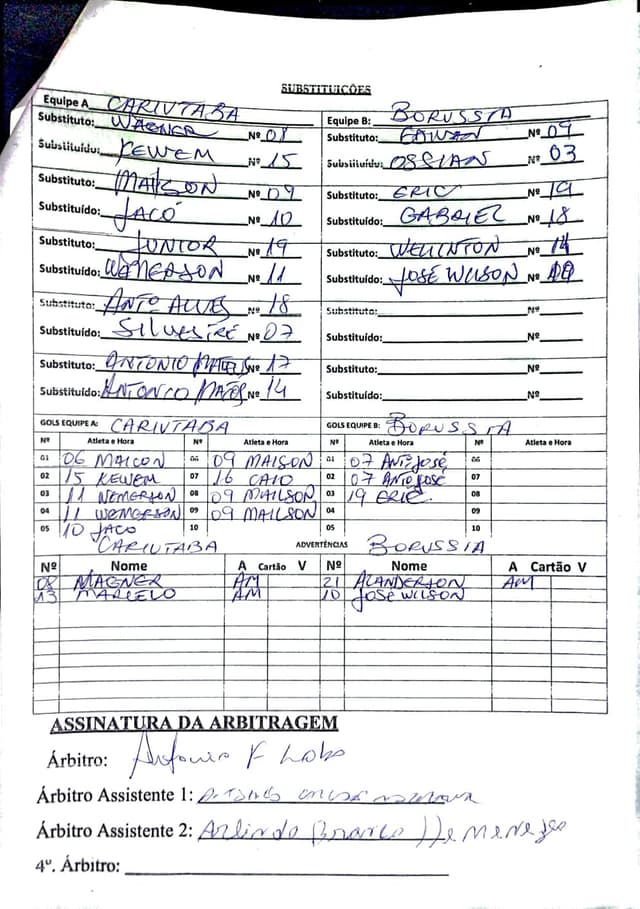 SUBSTITUIÇÕES
Equipe A CARIUTABA Equipe B: BORUSSIA
Substituto: WAGNER Nº 08 Substituto: Nº 09
Substituído: KEWEM Nº 15 Substituído: OSSIAN Nº 03
Substituto: MAILSON Nº 09 Substituto: ERIC Nº 19
Substituído: JACÓ Nº 10 Substituído: GABRIEL Nº 18
Substituto: JUNIOR Nº 19 Substituto: WELINTON Nº 14
Substituído: WEMERSON Nº 11 Substituído: JOSÉ WILSON Nº 10
Substituto: ANTO ALVES Nº 18 Substituto: Nº
Substituído: SILVESTRE Nº 07 Substituído: Nº
Substituto: ANTONIO MATEUS Nº 17 Substituto: Nº
Substituído: ANTONIO Nº 14 Substituído: Nº
GOLS EQUIPE A: CARIUTABA GOLS EQUIPE B: BORUSSIA
Nº Atleta e Hora Nº Atleta e Hora Nº Atleta e Hora Nº Atleta e Hora
01 06 MAICON 06 09 MAISON 01 07 ANTO JOSÉ 06
02 15 KEWEM 07 16 CAIO 02 07 ANTO JOSÉ 07
03 11 WEMERSON 08 09 MAILSON 03 19 ERIC 08
04 11 WEMERSON 09 09 MAILSON 04 09
05 10 JACO 10 05 10
CARIUTABA ADVERTÊNCIAS BORUSSIA
Nº Nome A Cartão V Nº Nome A Cartão V
08 WAGNER AM 21 ALANDERSON AM
13 MARCELO AM 10 JOSÉ WILSON
ASSINATURA DA ARBITRAGEM
Árbitro: Antonio F Lobo
Árbitro Assistente 1:
Árbitro Assistente 2: Arlindo Branco De Menezes
4º. Árbitro: